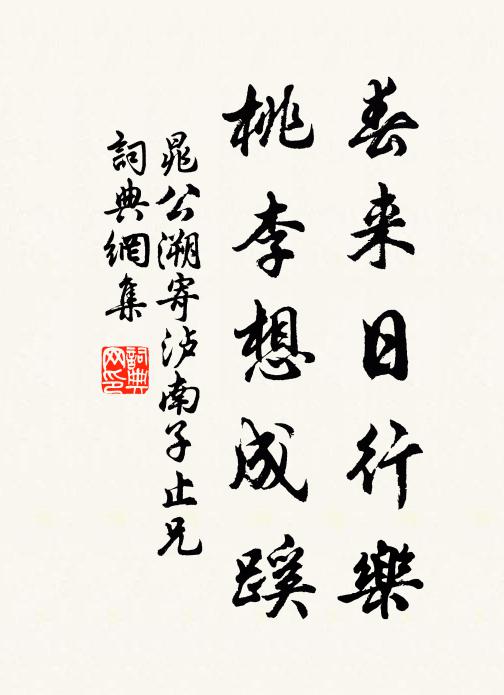 春来日行樂
桃李想成蹊
晁公溯寄泸南子止兄
詞典網集
詞典网印